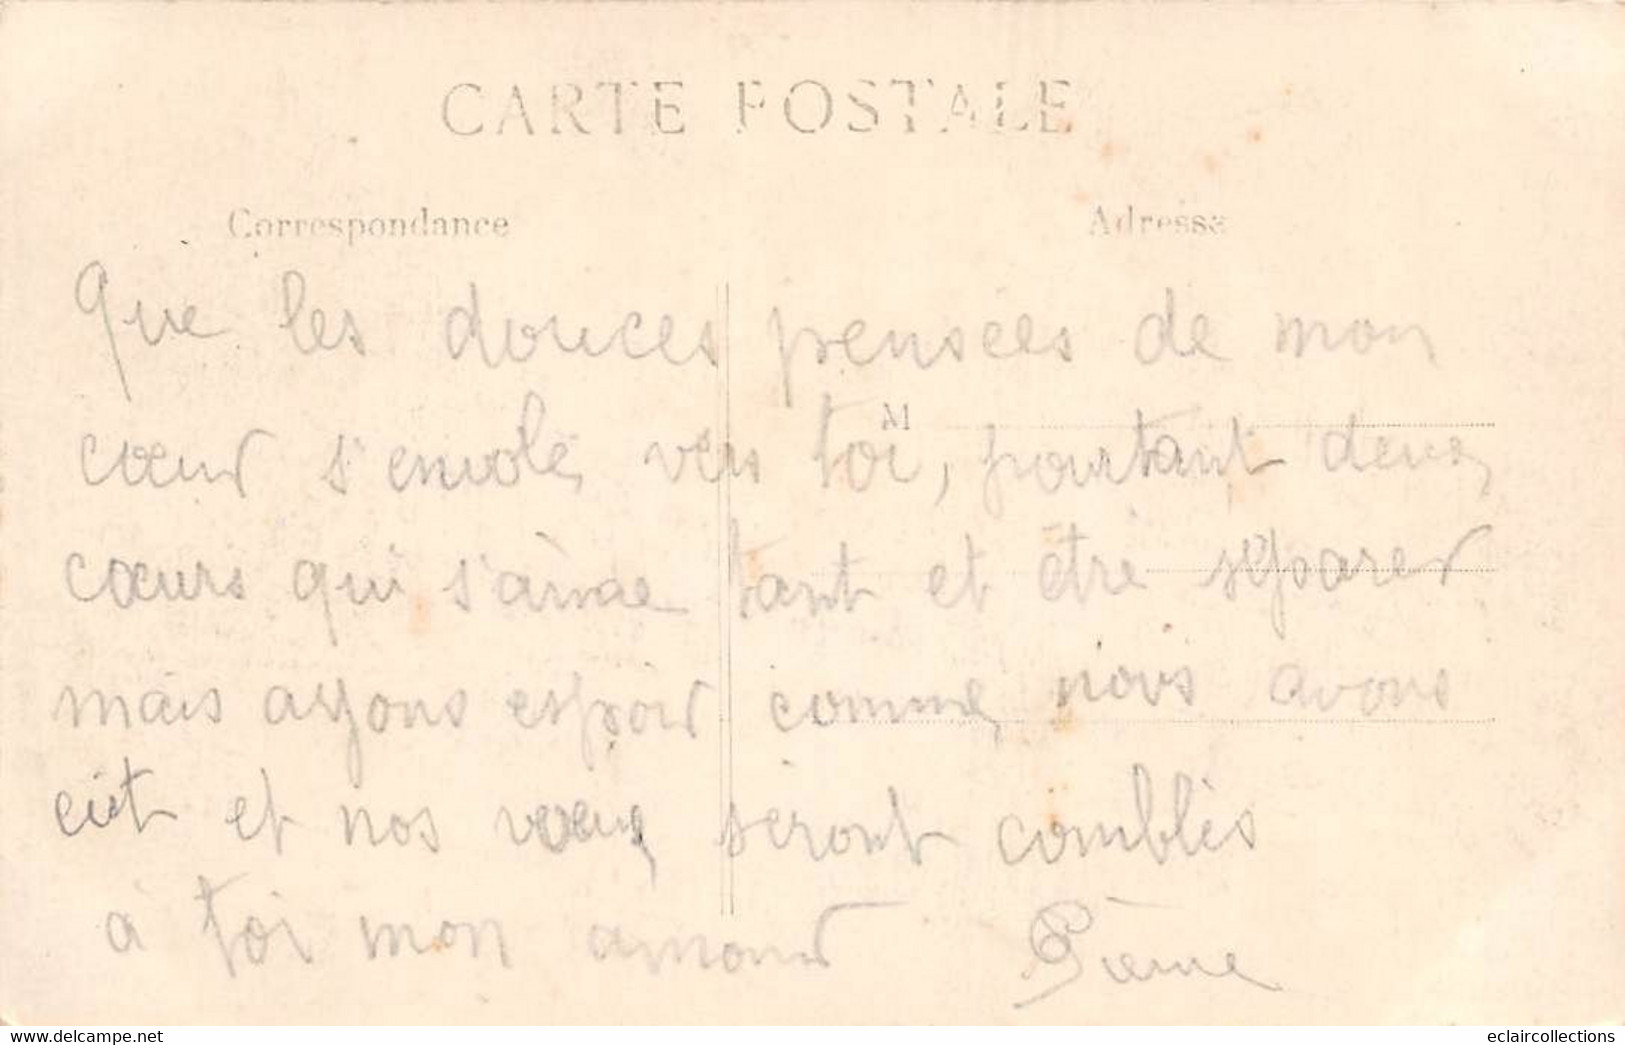 CARTE POSTALE
Correspondance
Adresse
Que les douces pensées de mon
M
cœur s'envole vers toi, pourtant deux
cœurs qui s'aime tant et être séparer
mais ayons espoir comme nous avons
eut et nos vœux seront comblés
à toi mon amour Pierre
www.delcampe.net
eclaircollections